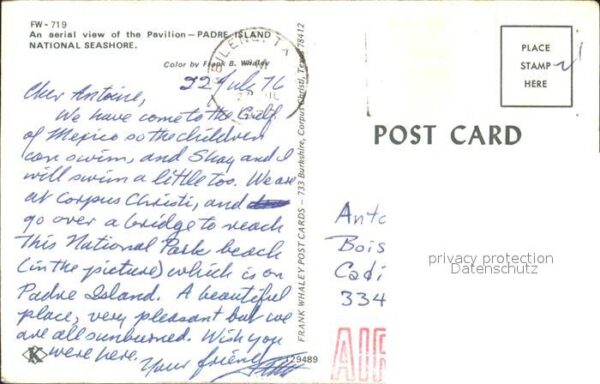 FW-719
An aerial view of the Pavilion—PADRE ISLAND
NATIONAL SEASHORE.
Color by Frank B. Whaley
22 July 76
Cher Antoine,
We have come to the Gulf
of Mexico so the children
can swim, and Shay and I
will swim a little too. We are
at Corpus Christi, and
go over a bridge to reach
This National Park beach
(in the picture) which is on
Padre Island. A beautiful
place, very pleasant but we
are all sunburned. Wish you
were here. Your friend
K
129489
FRANK WHALEY POST CARDS — 733 Burkshire, Corpus Christi, Texas 78412
PLACE
STAMP
HERE
POST CARD
Anto
Bois
Cadi
334
privacy protection
Datenschutz
AIR